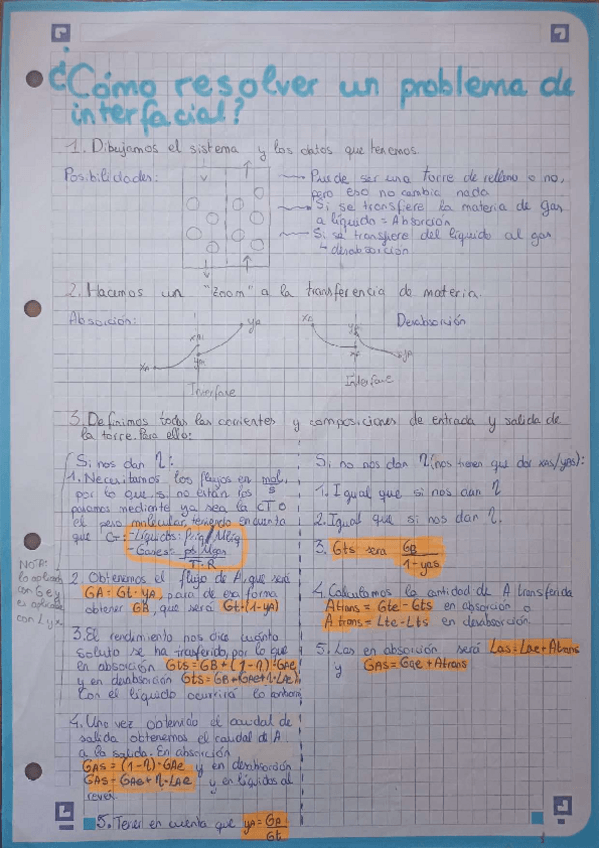 ¿Cómo resolver un problema de
interfacial?
1. Dibujamos el sistema y los datos que tenemos.
Posibilidades:
Puede ser una torre de relleno o no,
pero eso no cambia nada
Si se transfiere la materia de gas
a líquido = Absorción
Si se transfiere del líquido al gas
↳ desabsorción
2. Hacemos un "zoom" a la transferencia de materia.
Absorción:
Desabsorción
Interfase
Interfase
3. Definimos todas las corrientes y composiciones de entrada y salida de
la torre. Para ello:
Si nos dan η:
1. Necesitamos los flujos en mol/s,
por lo que si no están los
pasamos mediante ya sea la CT o
el peso molecular, teniendo en cuenta
que CT = - Líquidos: ρliq/Mliq
- Gases =
T·R
NOTA:
lo aplicado
con G e y
es aplicable
con L y x
2. Obtenemos el flujo de A, que será
GA = Gt · yA, para de esa forma
obtener GB, que será Gt·(1-yA)
3. El rendimiento nos dice cuánto
soluto se ha trasferido, por lo que
en absorción Gts = GB + (1-η)·GAe,
y en desabsorción Gts = GB + GAe + η·LAe,
con el líquido ocurrirá lo contrario
4. Una vez obtenido el caudal de
salida obtenemos el caudal de A
a la salida. En absorción
GAs = (1-η)·GAe y en desabsorción
GAs = GAe + η·LAe y en líquidos al
revés.
5. Tener en cuenta que yA = GA/Gt
Si no nos dan η (nos tienen que dar xas/yas):
1. Igual que si nos dan η
2. Igual que si nos dan η.
3. Gts será GB/1-yas
4. Calculamos la cantidad de A transferida
Atrans = Gte - Gts en absorción o
Atrans = Lte - Lts en desabsorción.
5. Las en absorción será Las = Lae + Atrans
y GAs = Gae + Atrans